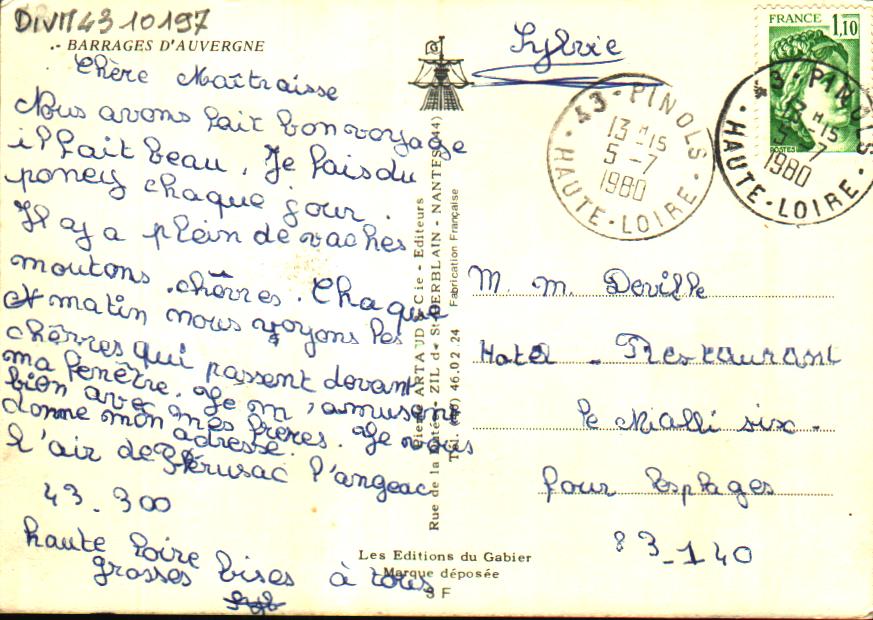 DIVM 43 10197
BARRAGES D'AUVERGNE
Chère Maîtraisse
Nous avons fait bon voyage
il fait beau. Je fais du
poney chaque jour.
Il y a plein de vaches
moutons. chèvres. Chaque
matin nous voyons les
chèvres qui passent devant
ma fenêtre. Je m'amuse
bien avec mes frères. Je vous
donne mon adresse.
l'air de l'angeac
43-300
haute loire
grosses bises à tous
Sylvie
FRANCE 1,10
POSTES
43-PINOLS
13H15
5-7
1980
HAUTE-LOIRE
43-PINOLS
13H15
5-7
1980
HAUTE-LOIRE
M. m. Deville
Hotel - Restaurant
le six-
four les plages
83-140
Pierre ARTAUD & Cie - Editeurs
Rue de la - ZIL de St-HERBLAIN - NANTES (44)
Tél. (40) 46.02.24 Fabrication Française
Les Editions du Gabier
Marque déposée
3 F